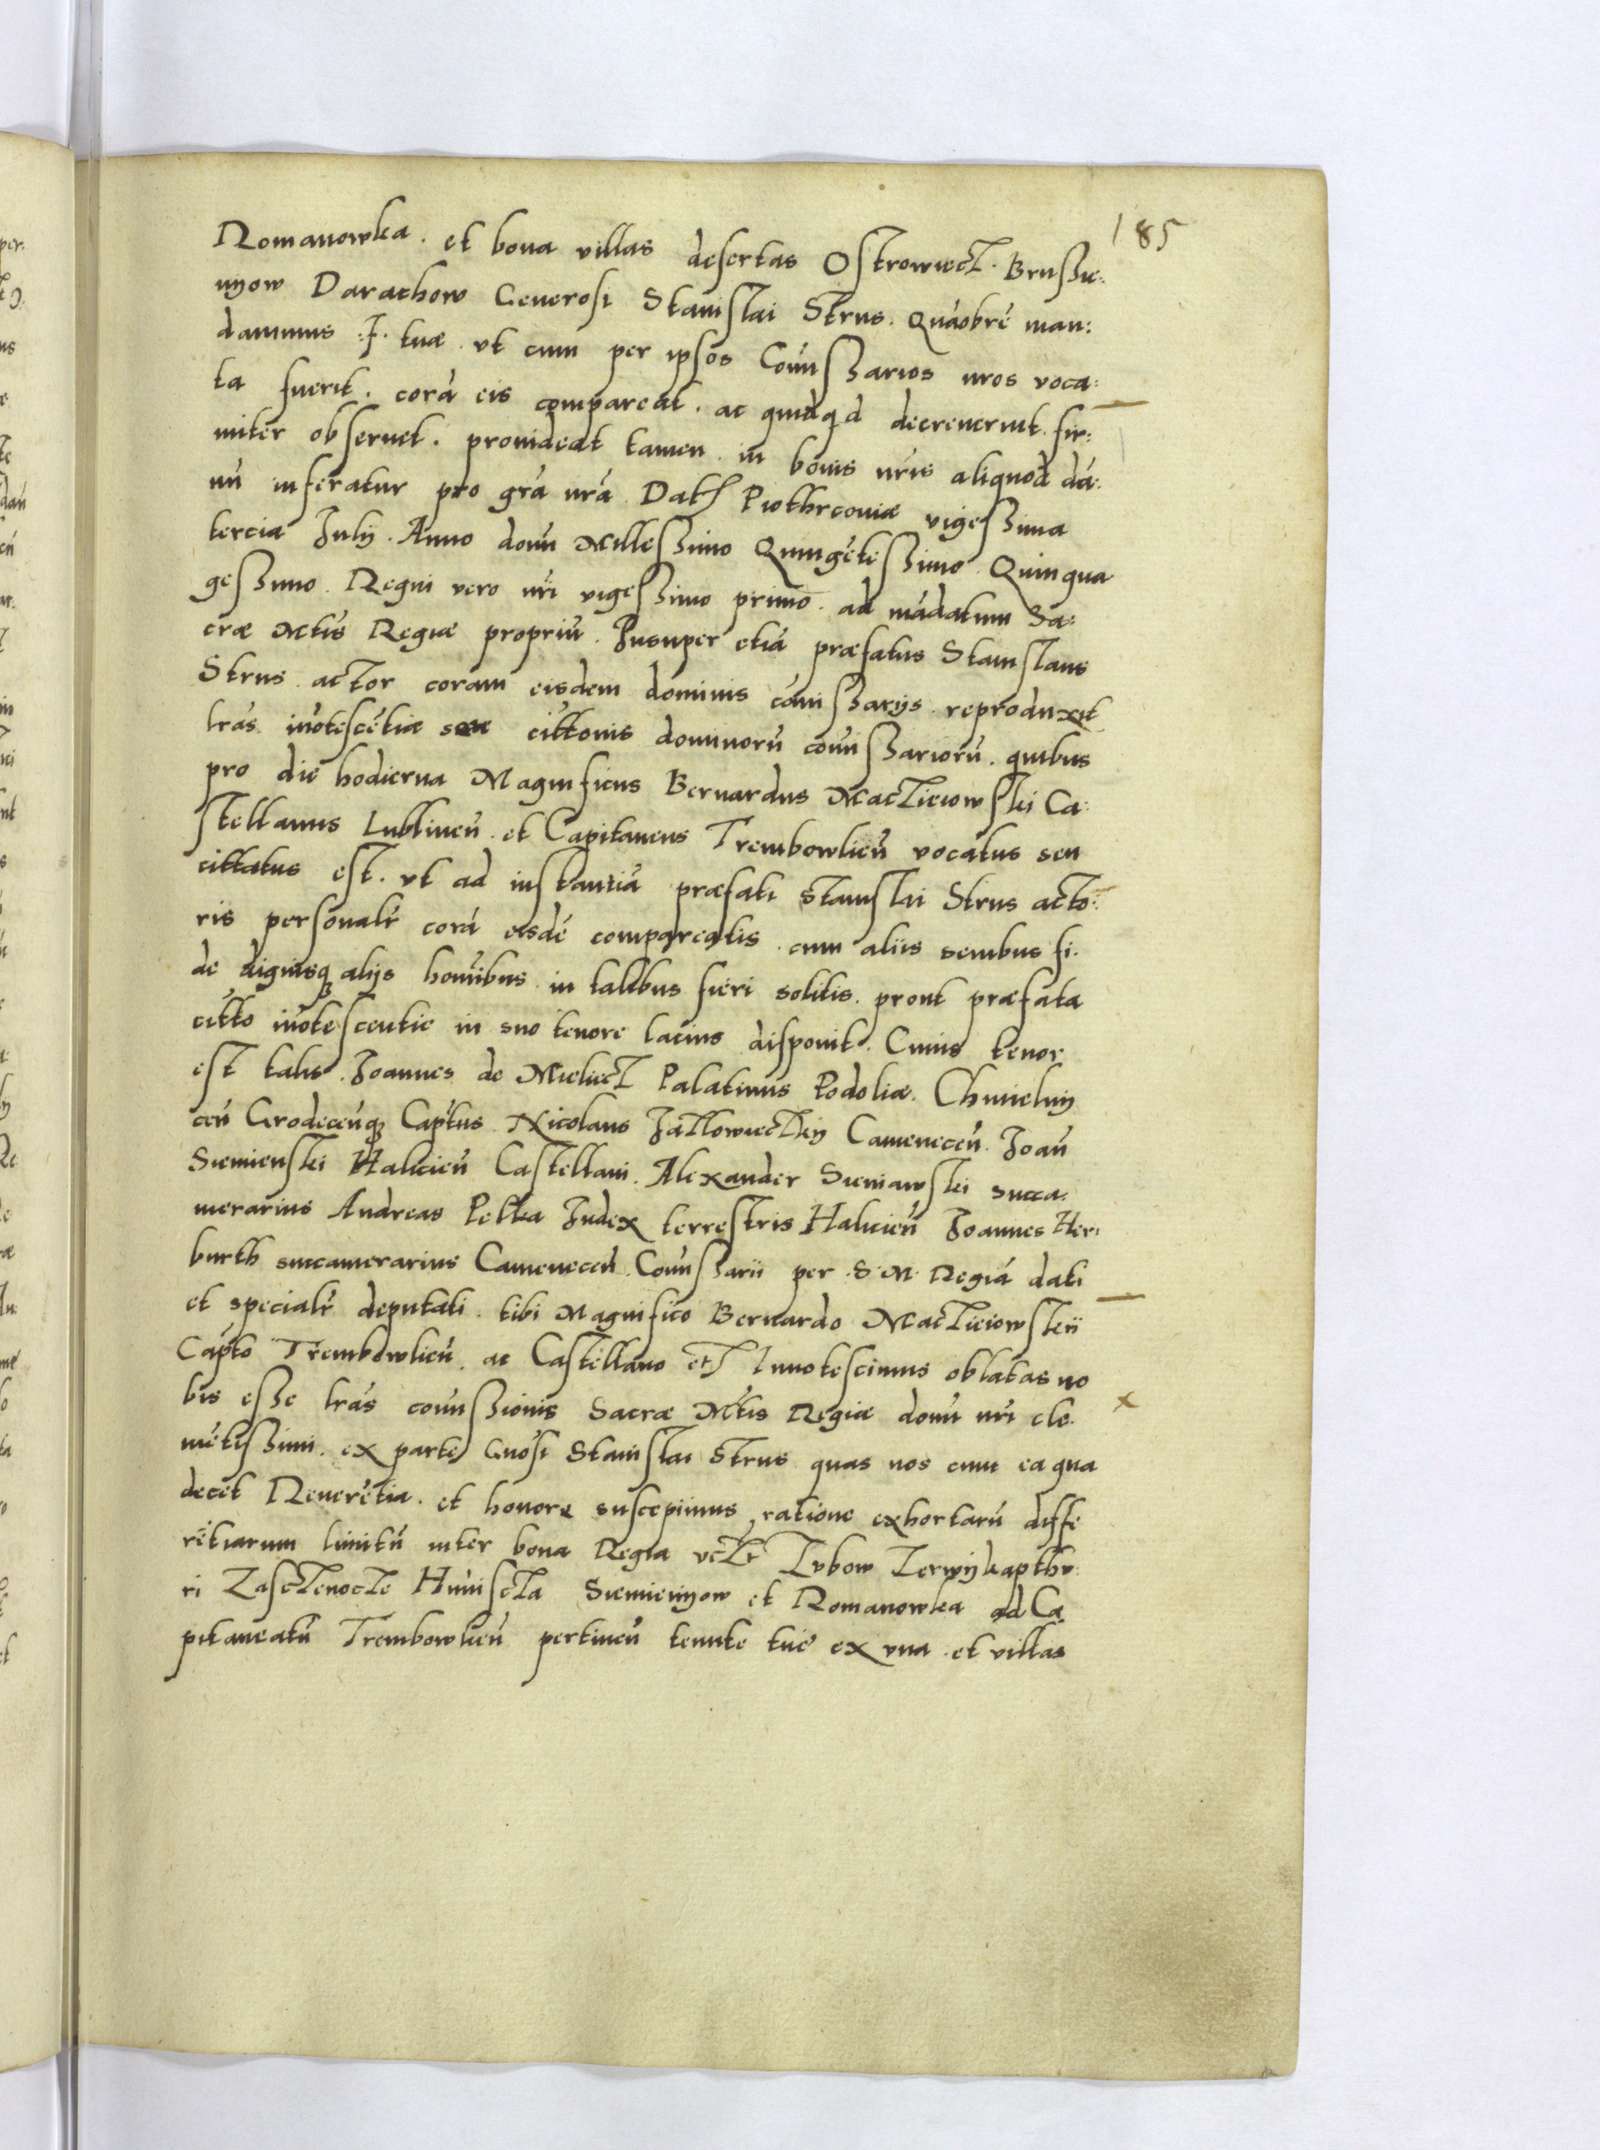 185
Romanowka . et bona villas desertas Ostrowiecz . Brusie:
nyow Darachow Generosi Stanislai Strus . Quáobrē man:
damus .F. tuæ . vt cum per ipsos Com̄issarios nros voca:
ta fuerit . corá eis compareat . ac quidqd decreverint . fir:
miter observet . provideat tamen . in bonis nr̄is aliquod dá:
nū inferatur pro grá nrá . Dat Piothrcoviæ vigessima
tercia July . Anno domī Millessimo Quingētessimo Quinqua
gessimo . Regni vero nr̄i vigessimo primo . ad mádatum Sa:
cræ Mtis Regiæ propriū . Insuper etiá præfatus Stanislaus
Strus actor coram eisdem dominis com̄issarijs . reproduxit
lrás in̄otescētiæ seu cittonis dominorū com̄issariorū . quibus
pro die hodierna Magnificus Bernardus Macieiowski Ca:
stellanus Lublineñ . et Capitaneus Trembowlieñ vocatus seu
cittatus est . vt ad instantiá præfati Stanislai Strus acto:
ris personalr corá eisdē compareatis . cum aliis senibus fi.
de dignisq alijs hominibus in talibus fieri solitis . prout præfata
citto in̄otescentie in suo tenore lacius disponit . Cuius tenor
est talis . Joannes de Mieliecz Palatinus Podoliæ . Chmielny
ceñ Grodeceñq Captus . Nicolaus Jazlowieczky Cameneceñ . Joañ
Siemienski Halicieñ Castellani . Alexander Sieniawski succa:
merarius Andreas Pelka Judex terrestris Halicieñ Joannes Her:
burth succamerarius Cameneceñ . Com̄issarii per S. M. Regiá dati
et specialr deputati . tibi Magnifico Bernardo Macieiowskii
Capto Trembowlieñ . ac Castellano etc Innotescimus oblatas no
bis esse lrás com̄issionis Sacræ Mtis Regiæ domī nr̄i cle
mētissimi . ex parte Gnosi Stanislai Strus quas nos cum ea qua
decet Reverētia . et honore suscepimus ratione exhortarū diffe
rētiarum limitū inter bona Regia vczt Lubow Jerwykapthu
ri Zascienocze Hnisczka Siemienyow et Romanowka ad Ca
pitaneatū Trembowlieñ pertineñ tenute tue ex vna . et villas